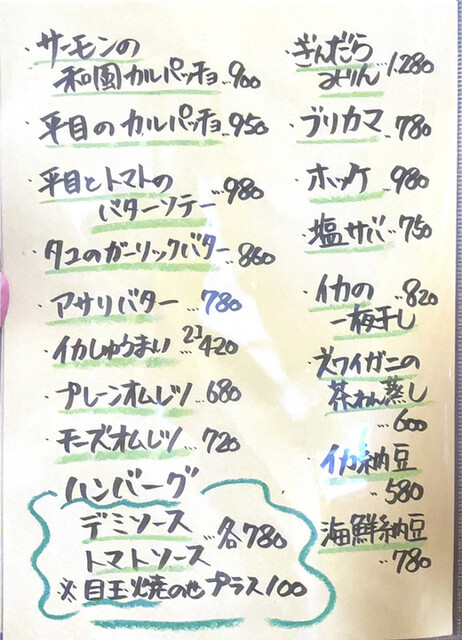 ・サーモンの
和風カルパッチョ…900
・平目のカルパッチョ…950
・平目とトマトの
バターソテー…980
・タコのガーリックバター…860
・アサリバター…780
・イカしゅうまい…2コ420
・プレーンオムレツ…680
・チーズオムレツ…720
・ハンバーグ
デミソース
トマトソース
…各780
※目玉焼のせプラス100
・ぎんだら
みりん…1,280
・ブリカマ…780
・ホッケ…980
・塩サバ…750
・イカの…820
一梅干し
・ズワイガニの
茶わん蒸し
…600
・イカ納豆
…580
・海鮮納豆
…780